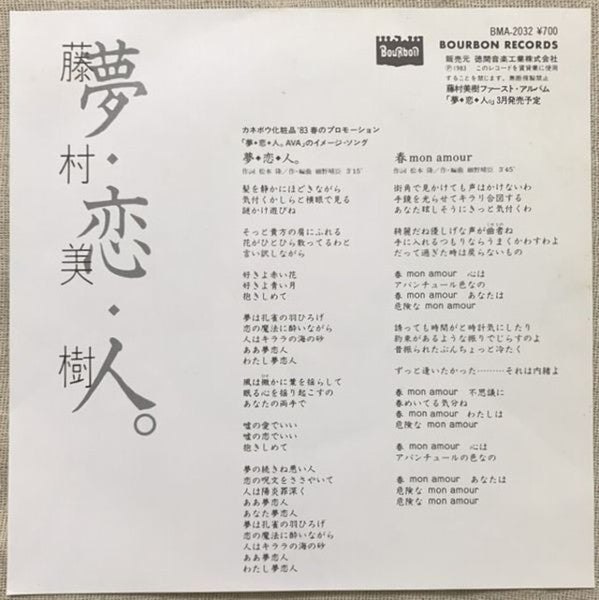 夢・恋・人。
藤村美樹
Bourbon
BMA-2032 ¥700
BOURBON RECORDS
販売元 徳間音楽工業株式会社
Ⓟ1983 このレコードを賃貸業に使用
することを禁じます。無断複製禁止
藤村美樹ファースト・アルバム
「夢◆恋◆人。」3月発売予定
カネボウ化粧品'83 春のプロモーション
「夢◆恋◆人。AVA」のイメージ・ソング
夢◆恋◆人。
作詞 松本 隆/作・編曲 細野晴臣 3'15"
髪を静かにほどきながら
気付くかしらと横眼で見る
謎かけ遊びね
そっと貴方の肩にふれる
花がひとひら散ってるわと
言い訳しながら
好きよ赤い花
好きよ青い月
抱きしめて
夢は孔雀の羽ひろげ
恋の魔法に酔いながら
人はキララの海の砂
ああ夢恋人
わたし夢恋人
風は微かに葉を揺らして
眠る心を揺り起こすの
あなたの両手で
嘘の愛でいい
嘘の恋でいい
抱きしめて
夢の続きね悪い人
恋の呪文をささやいて
人は陽炎罪深く
ああ夢恋人
あなた夢恋人
夢は孔雀の羽ひろげ
恋の魔法に酔いながら
人はキララの海の砂
ああ夢恋人
わたし夢恋人
春 mon amour
作詞 松本 隆/作・編曲 細野晴臣 3'45"
街角で見かけても声はかけないわ
手鏡を光らせてキラリ合図する
あなた眩しそうにきっと気付くわ
綺麗だね優しげな声が曲者ね
手に入れるつもりならうまくかわすわよ
だって過ぎた時は戻らないもの
春 mon amour 心は
アバンチュール色なの
春 mon amour あなたは
危険な mon amour
誘っても時間がと時計気にしたり
約束があるような振りでじらすのよ
昔振られたぶんちょっと冷たく
ずっと逢いたかった………それは内緒よ
春 mon amour 不思議に
春めいてる気分ね
春 mon amour わたしは
危険な mon amour
春 mon amour 心は
アバンチュール色なの
春 mon amour あなたは
危険な mon amour
危険な mon amour